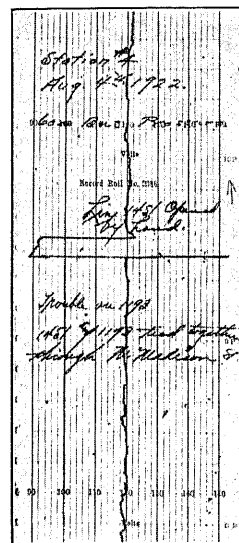 Station #4
Aug 4th 1922.
Volts
Record Roll No.
Line 1451 Opened
by hand.
Trouble on 1193
1451 & 1193 tied together
through W. Madison St
90 100 110 120 130 140
Volts